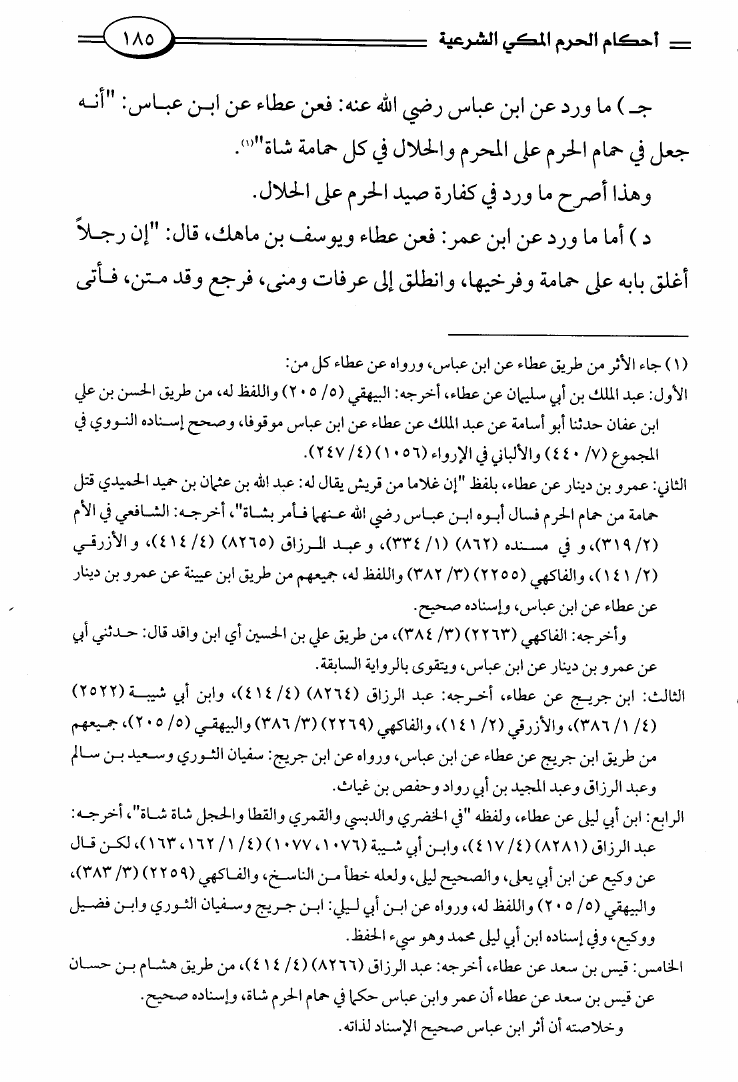 أحكام الحرم المكي الشرعية
١٨٥
جـ) ما ورد عن ابن عباس رضي الله عنه: فعن عطاء عن ابن عباس: "أنه
جعل في حمام الحرم على المحرم والحلال في كل حمامة شاة"(١).
وهذا أصرح ما ورد في كفارة صيد الحرم على الحلال.
د) أما ما ورد عن ابن عمر: فعن عطاء ويوسف بن ماهك، قال: "إن رجلاً
أغلق بابه على حمامة وفرخيها، وانطلق إلى عرفات ومنى، فرجع وقد متن، فأتى
(١) جاء الأثر من طريق عطاء عن ابن عباس، ورواه عن عطاء كل من:
الأول: عبد الملك بن أبي سليمان عن عطاء، أخرجه: البيهقي (٥/ ٢٠٥) واللفظ له، من طريق الحسن بن علي
ابن عفان حدثنا أبو أسامة عن عبد الملك عن عطاء عن ابن عباس موقوفا، وصحح إسناده النووي في
المجموع (٧/ ٤٤٠) والألباني في الإرواء (١٠٥٦) (٤/ ٢٤٧).
الثاني: عمرو بن دينار عن عطاء، بلفظ "إن غلاما من قريش يقال له: عبد الله بن عثمان بن حميد الحميدي قتل
حمامة من حمام الحرم فسال أبوه ابن عباس رضي الله عنهما فأمر بشاة"، أخرجه: الشافعي في الأم
(٢/ ٣١٩)، و في مسنده (٨٦٢) (١/ ٣٣٤)، و عبد الرزاق (٨٢٦٥) (٤/ ٤١٤)، و الأزرقي
(٢/ ١٤١)، والفاكهي (٢٢٥٥) (٣/ ٣٨٢) واللفظ له، جميعهم من طريق ابن عيينة عن عمرو بن دينار
عن عطاء عن ابن عباس، وإسناده صحيح.
وأخرجه: الفاكهي (٢٢٦٣) (٣/ ٣٨٤)، من طريق علي بن الحسين أي ابن واقد قال: حدثني أبي
عن عمرو بن دينار عن ابن عباس، ويتقوى بالرواية السابقة.
الثالث: ابن جريج عن عطاء، أخرجه: عبد الرزاق (٨٢٦٤) (٤/ ٤١٤)، وابن أبي شيبة (٢٥٢٢)
(٤/ ١/ ٣٨٦)، والأزرقي (٢/ ١٤١)، والفاكهي (٢٢٦٩) (٣/ ٣٨٦) والبيهقي (٥/ ٢٠٥)، جميعهم
من طريق ابن جريج عن عطاء عن ابن عباس، ورواه عن ابن جريج: سفيان الثوري وسعيد بن سالم
وعبد الرزاق وعبد المجيد بن أبي رواد وحفص بن غياث.
الرابع: ابن أبي ليلى عن عطاء، ولفظه "في الخضري والدبسي والقمري والقطا والحجل شاة شاة"، أخرجه:
عبد الرزاق (٨٢٨١) (٤/ ٤١٧)، وابن أبي شيبة (١٠٧٦، ١٠٧٧) (٤/ ١/ ١٦٢، ١٦٣)، لكن قال
عن وكيع عن ابن أبي يعلى، والصحيح ليلى، ولعله خطأ من الناسخ، والفاكهي (٢٢٥٩) (٣/ ٣٨٣)،
والبيهقي (٥/ ٢٠٥) واللفظ له، ورواه عن ابن أبي ليلي: ابن جريج وسفيان الثوري وابن فضيل
ووكيع، وفي إسناده ابن أبي ليلى محمد وهو سيء الحفظ.
الخامس: قيس بن سعد عن عطاء، أخرجه: عبد الرزاق (٨٢٦٦) (٤/ ٤١٤)، من طريق هشام بن حسان
عن قيس بن سعد عن عطاء أن عمر وابن عباس حكما في حمام الحرم شاة، وإسناده صحيح.
وخلاصته أن أثر ابن عباس صحيح الإسناد لذاته.